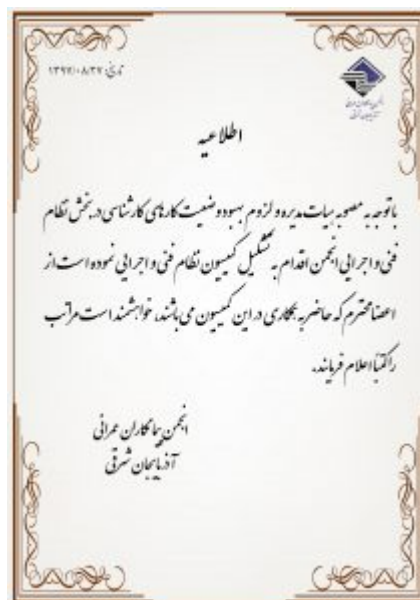 تاریخ: ۱۳۹۷/۰۸/۲۷
اطلاعیه
باتوجه به مصوبه هیات مدیره و لزوم بهبود وضعیت کارهای کارشناسی در بخش نظام
فنی و اجرایی انجمن اقدام به تشکیل کمیسیون نظام فنی و اجرایی نموده است از
اعضا محترم که حاضر به همکاری در این کمیسیون می باشند، خواهشمند است مراتب
را کتبا اعلام فرمایند.
انجمن پیمانکاران عمرانی
آذربایجان شرقی